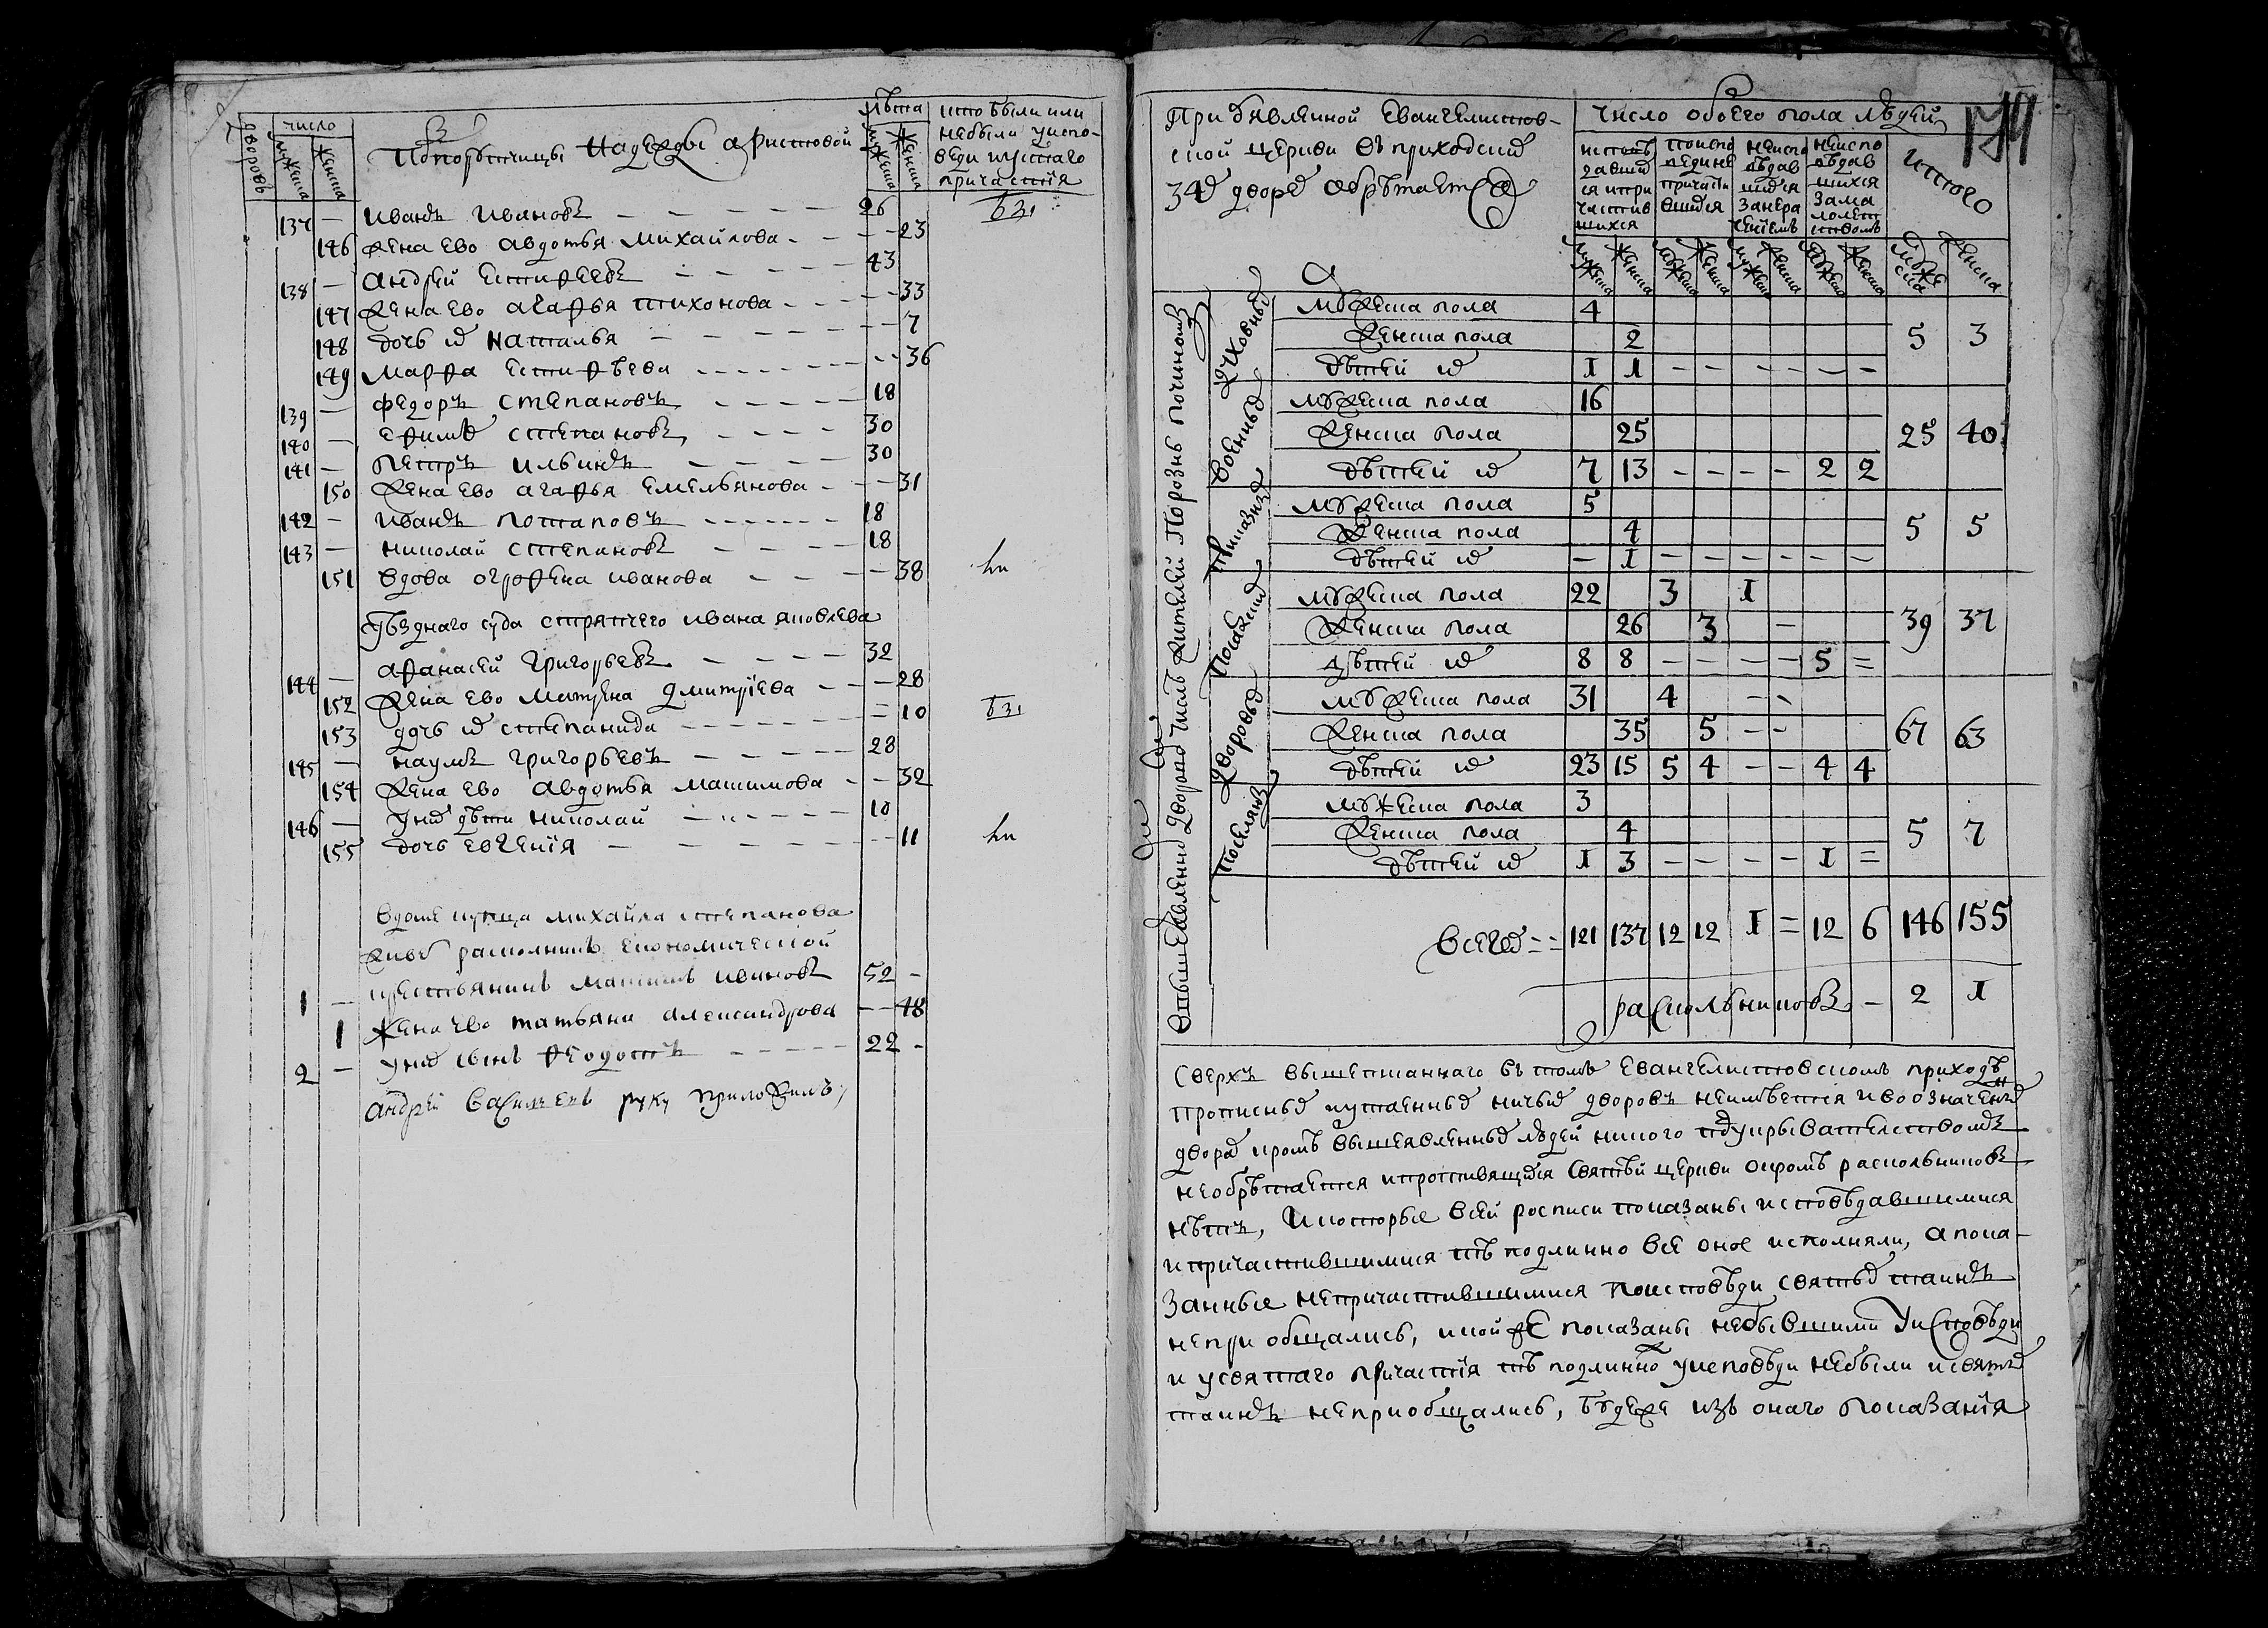 дворовъ
число
мужеска
женска
Попорутчицы Надежды Аристовой
лѣта
мужеска
женска
кто были или
небыли уиспо-
веди исвятаго
причастїя
137 — иванъ ивановъ — — — — — 26 бы
146 жена ево авдотья михайлова - — — 23
138 — андрей естифеевъ — — — — 43
147 жена ево агафья тихонова - - - - — 33
148 дочь их наталья — — — — — — 7
149 марфа естифѣева - - - - - - - - 36
139 — федоръ степановъ - - - - — 18
140 — ефимъ степановъ, - - - - 30
141 — петръ ильинъ — — — — — 30
150 жена ево агафья емельянова - — — 31
142 — иванъ потаповъ - - - - - - 18
143 — николай степановъ — — — — 18
151 вдова огрофена иванова — — — — 38 не
уѣзднаго суда стряпчего ивана яковлева
144 — афанасей григорьевъ — — — — 32
152 жена ево матрена дмитрїева - - — 28
153 дочь их степанида - - - - - - = 10 бы
145 — наумъ григорьевъ — — — — 28
154 жена ево авдотья макимова - — 32
146 — у них дѣти николай — - - - - — 10
155 дочь евгенїя — — — — — - - - 11 не
вдоме купца михайла степанова
живет раскольникъ економической
1 — крестьянинъ макимъ ивановъ 52 -
1 жена ево татьяна александрова — — 48
2 — у них сынъ феодотъ - - - - - 22 -
андрей васильевъ руку приложилъ
При обявленной Евангелистов-
ской церкви въ приходских
34х дворех обрѣтается
число обоего пола людей
исповѣ
давших
ся ипри
частив
шихся
поиспо
ведине
причасти
вшихся
неиспо
вѣдав
шихся
занера
ченїемъ
неиспо
вѣдав
шихся
зама
лолетт
ствомъ
итого
мужеска женска мужеска женска мужеска женска мужеска женска мужеска женска
Духовных
мужеска пола 4
женска пола 2 5 3
дѣтей их 1 1 — — — — — —
военных
мужеска пола 16
женска пола 25 25 40
дѣтей их 7 13 — — — — 2 2
приказных
мужеска пола 5
женска пола 4 5 5
дѣтей их — 1 — — — — — —
посацких
мужеска пола 22 3 1
женска пола 26 3 — 39 37
дѣтей их 8 8 — — — — 5 =
дворовых
мужеска пола 31 4 — -
женска пола 35 5 — - 67 63
дѣтей их 23 15 5 4 — — 4 4
поселянъ
мужеска пола 3
женска пола 4 5 7
дѣтей их 1 3 — — — — 1 =
Всего = = 121 137 12 12 1 = 12 6 146 155
раскольниковъ — 2 1
Сверхъ вышеписаннаго въ томъ Евангелистовскомъ приходѣ
прописных иутаенных ничьих дворовъ неимѣется ивоозначеных
дворах кромѣ вышеявленных людей никого подукрывательствомъ
необрѣтается ипротивящихся святѣй церкви окромѣ раскольниковъ
нѣтъ, Икоторые всей росписи показаны исповѣдавшимися
ипричастившимися тѣ подлинно все оное исполняли, а пока-
занные непричастившимися поисповѣди святых таинъ
неприобщались, икои же показаны небывшими уисповѣди
и усвятаго причастїя тѣ подлинно уисповѣди небыли исвятых
таинъ неприобщались, будеже изъ онаго показанїя